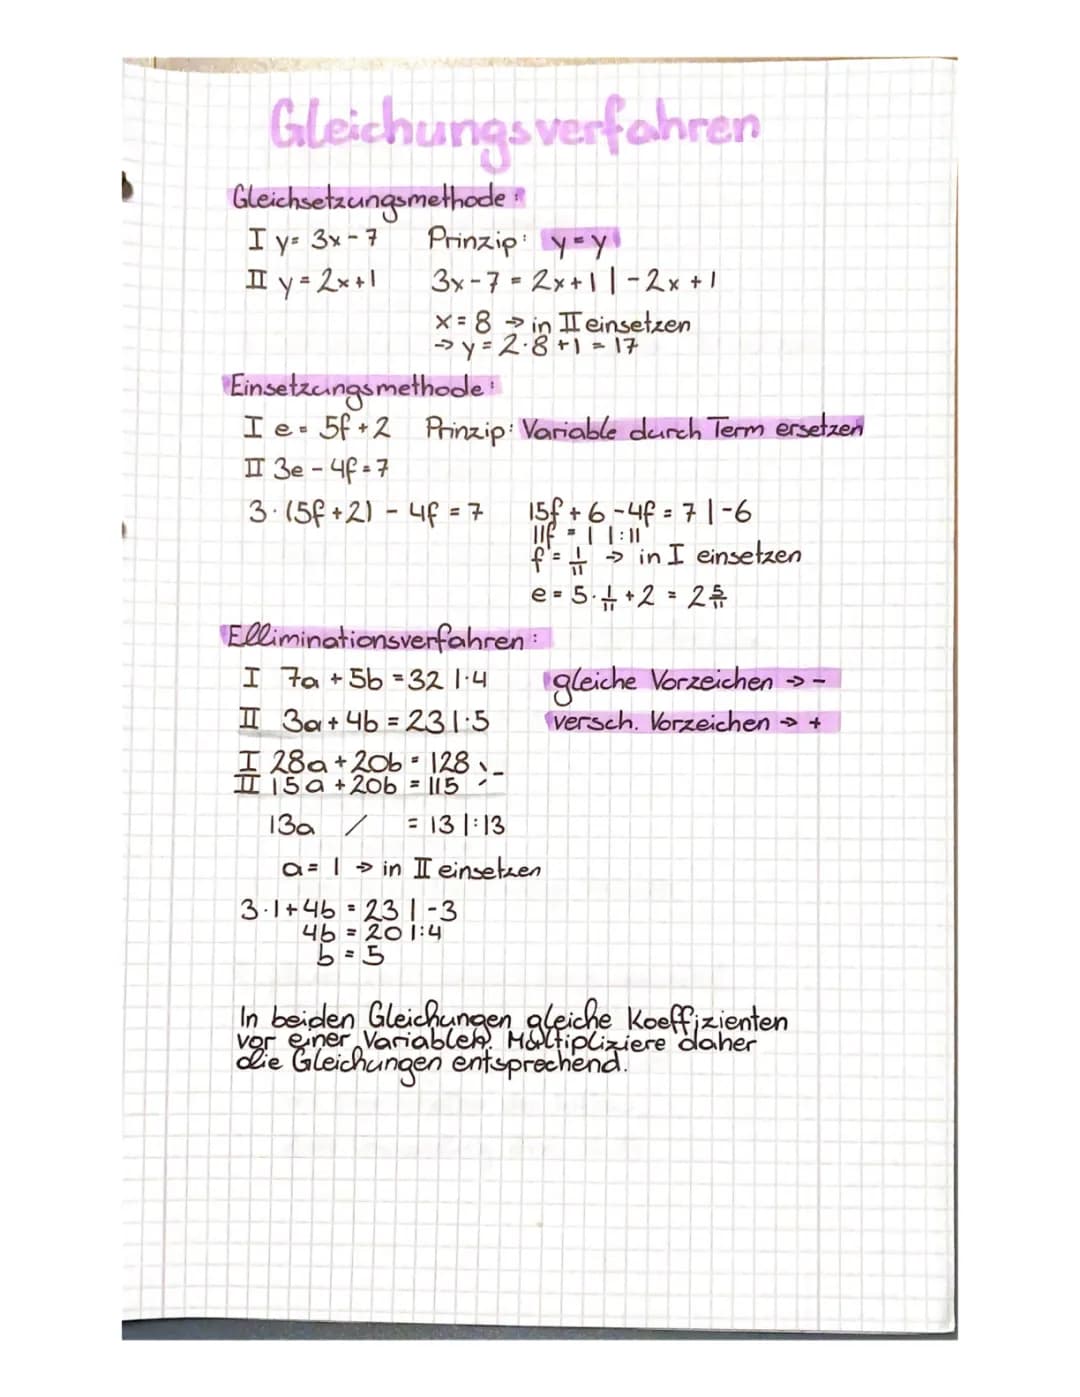 Gleichungsverfahren
Gleichsetzungsmethode:
I y = 3x - 7 Prinzip: y = y
II y = 2x + 1 3x - 7 = 2x + 1 | - 2x + 1
x = 8 → in II einsetzen
→ y = 2·8 + 1 = 17
Einsetzungsmethode:
I e = 5f + 2 Prinzip: Variable durch Term ersetzen
II 3e - 4f = 7
3·(5f + 2) - 4f = 7 15f + 6 - 4f = 7 | -6
11f = 1 | :11
f = 1/11 → in I einsetzen
e = 5·1/11 + 2 = 2 5/11
Elliminationsverfahren:
I 7a + 5b = 32 |·4 gleiche Vorzeichen → -
II 3a + 4b = 23 |·5 versch. Vorzeichen → +
I 28a + 20b = 128 -
II 15a + 20b = 115
13a / = 13 | :13
a = 1 → in II einsetzen
3·1 + 4b = 23 | -3
4b = 20 | :4
b = 5
In beiden Gleichungen gleiche Koeffizienten
vor einer Variablen. Multipliziere daher
die Gleichungen entsprechend.